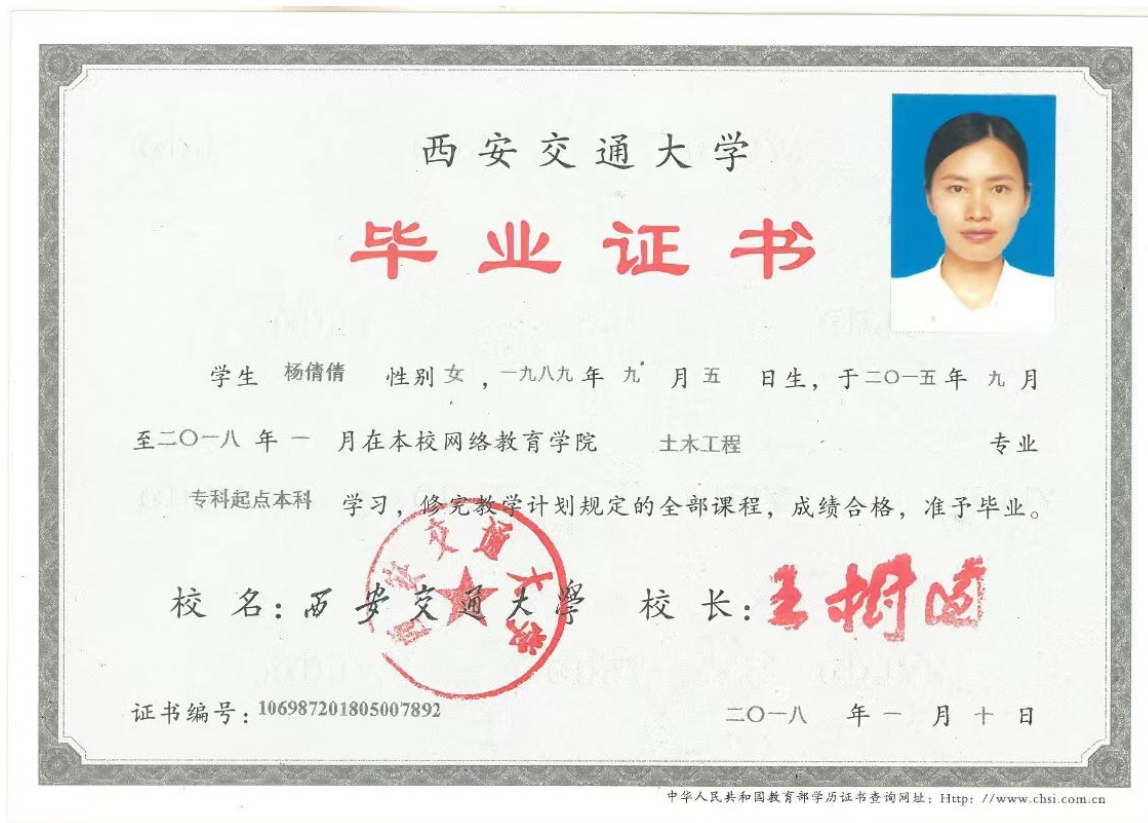 西安交通大学
毕业证书
学生 杨倩倩 性别 女 ，一九八九 年 九 月 五 日生，于二〇一五年 九 月
至二〇一八 年 一 月在本校网络教育学院 土木工程 专业
专科起点本科 学习，修完教学计划规定的全部课程，成绩合格，准予毕业。
校 名：西安交通大學 校 长：王树国
西安交通大学
证书编号：106987201805007892 二〇一八 年 一 月 十 日
中华人民共和国教育部学历证书查询网址：Http：//www.chsi.com.cn